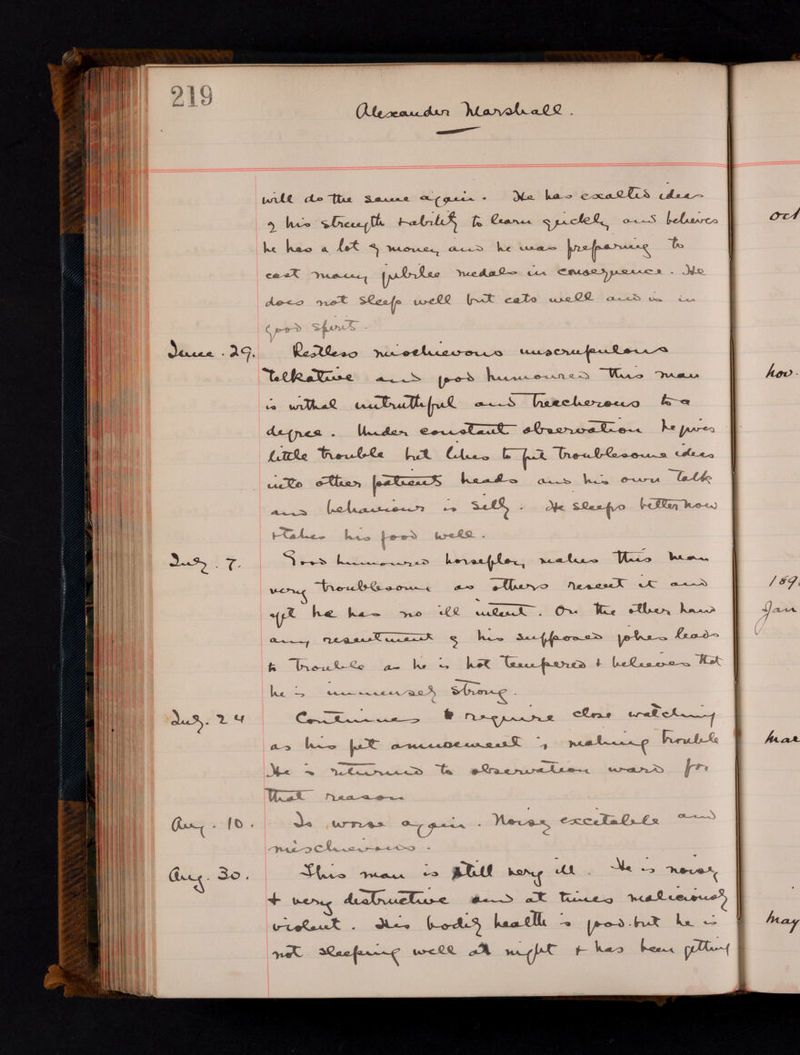 219
Alexander Marshall.
will do the same again. He has exalted ideas
of his strength & ability to learn quickly, and believes
he has a lot of money, and he was preparing to
cast many jubilee medals in consequence. He
does not sleep well but eats well and is in
good spirits.
June. 29. Restless mischievous unscrupulous
talkative and good humoured this man
is withal untruthful and treacherous to a
degree. Under constant observation he gives
little trouble but likes to put troublesome ideas
into other patients heads and his own talk
and behaviour is silly. He sleeps better now
& takes his food well.
July. 7. Good humoured horseplay makes this man
very troublesome as others resent it and
yet he has no ill intent. On the other hand
any resentment of his supposed jokes leads
to trouble as he is hot tempered & believes that
he is immensely strong.
July. 24 Continues to require close watching
as his pet amusement is making trouble
He is returned to observation ward for
that reason
Aug. 10. Is worse again. Noisy excitable and
mischievous.
Aug. 30. This man is still very ill. He is noisy
& very destructive and at times maliciously
violent. His bodily health is good but he is
not sleeping well at night & has been getting
Oct
Nov.
189
Jan
Mar
May